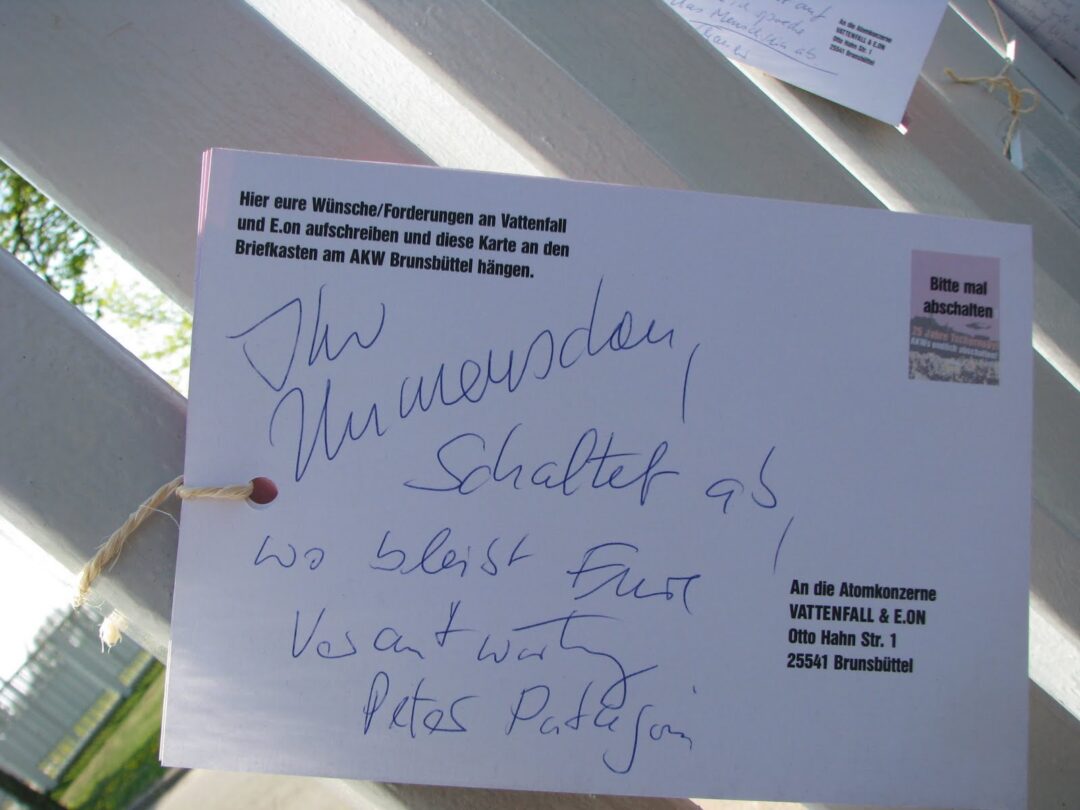 das Menschsein ab
An die Atomkonzerne
VATTENFALL & E.ON
Otto Hahn Str. 1
25541 Brunsbüttel
Hier eure Wünsche/Forderungen an Vattenfall
und E.on aufschreiben und diese Karte an den
Briefkasten am AKW Brunsbüttel hängen.
Bitte mal
abschalten
25 Jahre Tschernobyl
AKWs endlich abschalten
Ihr
Unmenschen,
Schaltet ab,
wo bleibt Eure
Verantwortung
Peter
An die Atomkonzerne
VATTENFALL & E.ON
Otto Hahn Str. 1
25541 Brunsbüttel